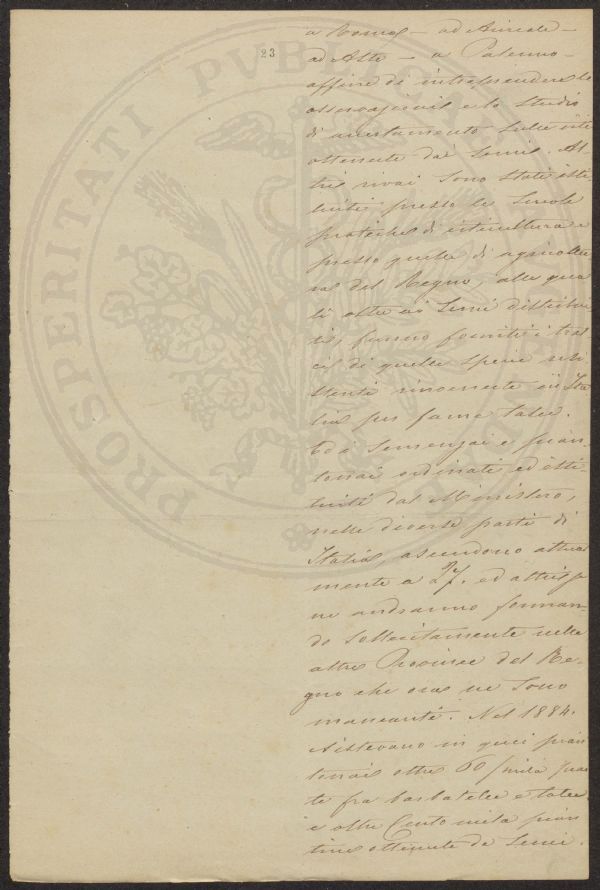 23
a Roma – ad Aicale –
ad Asti – a Palermo –
affine di intraprendere le
osservazioni e lo studio
di accertamento sulle viti
ottenute dai semi. Al
tri vivai sono stati isti
tuiti presso le Scuole
pratiche di viticultura e
presso quelle di agricoltu
ra del Regno, alle qua
li oltre ai semi distribui
ti, furono forniti i tral
ci di quelle specie resi
stenti rinvenute in Ita
lia per farne talee.
Ed i semenzai e pian
tonai ordinati ed isti
tuiti dal Ministero,
nelle diverse parti di
Italia, ascendono attual
mente a 27. ed altri
ne andranno forman
do sollecitamente nelle
altre Provincie del Re
gno che ora ne sono
mancanti. Nel 1884.
esistevano in quei pian
tonai oltre 60/mila pian
te fra barbatelle e talee
e oltre Cento mila pian
tine ottenute da semi.
PROSPERITATI PVBLICAE